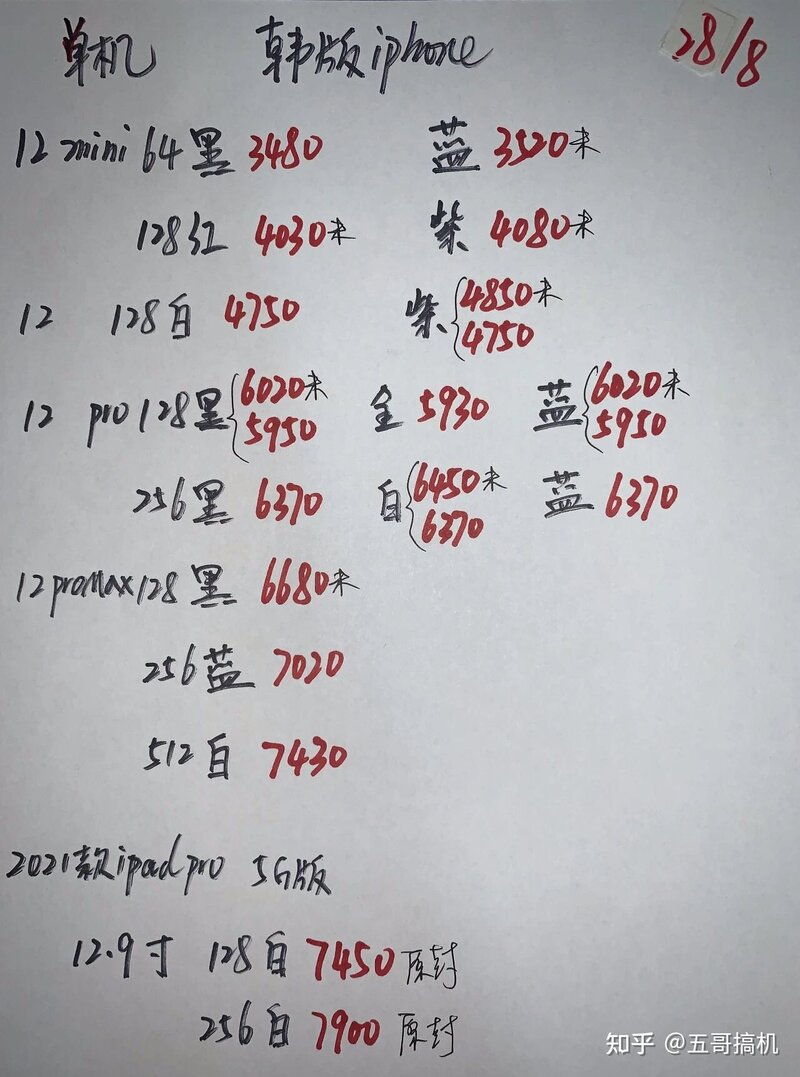 单机 韩版iphone 28/8
12 mini 64 黑 3480 蓝 3520未
128红 4030未 紫 4080未
12 128白 4750 紫 4850未
4750
12 pro 128黑 6020未 金 5930 蓝 6020未
5950 5950
256黑 6370 白 6450未 蓝 6370
6370
12proMax128黑 6680未
256蓝 7020
512白 7430
2021款ipad pro 5G版
12.9寸 128白 7450原封
256白 7900原封
知乎 @五哥搞机